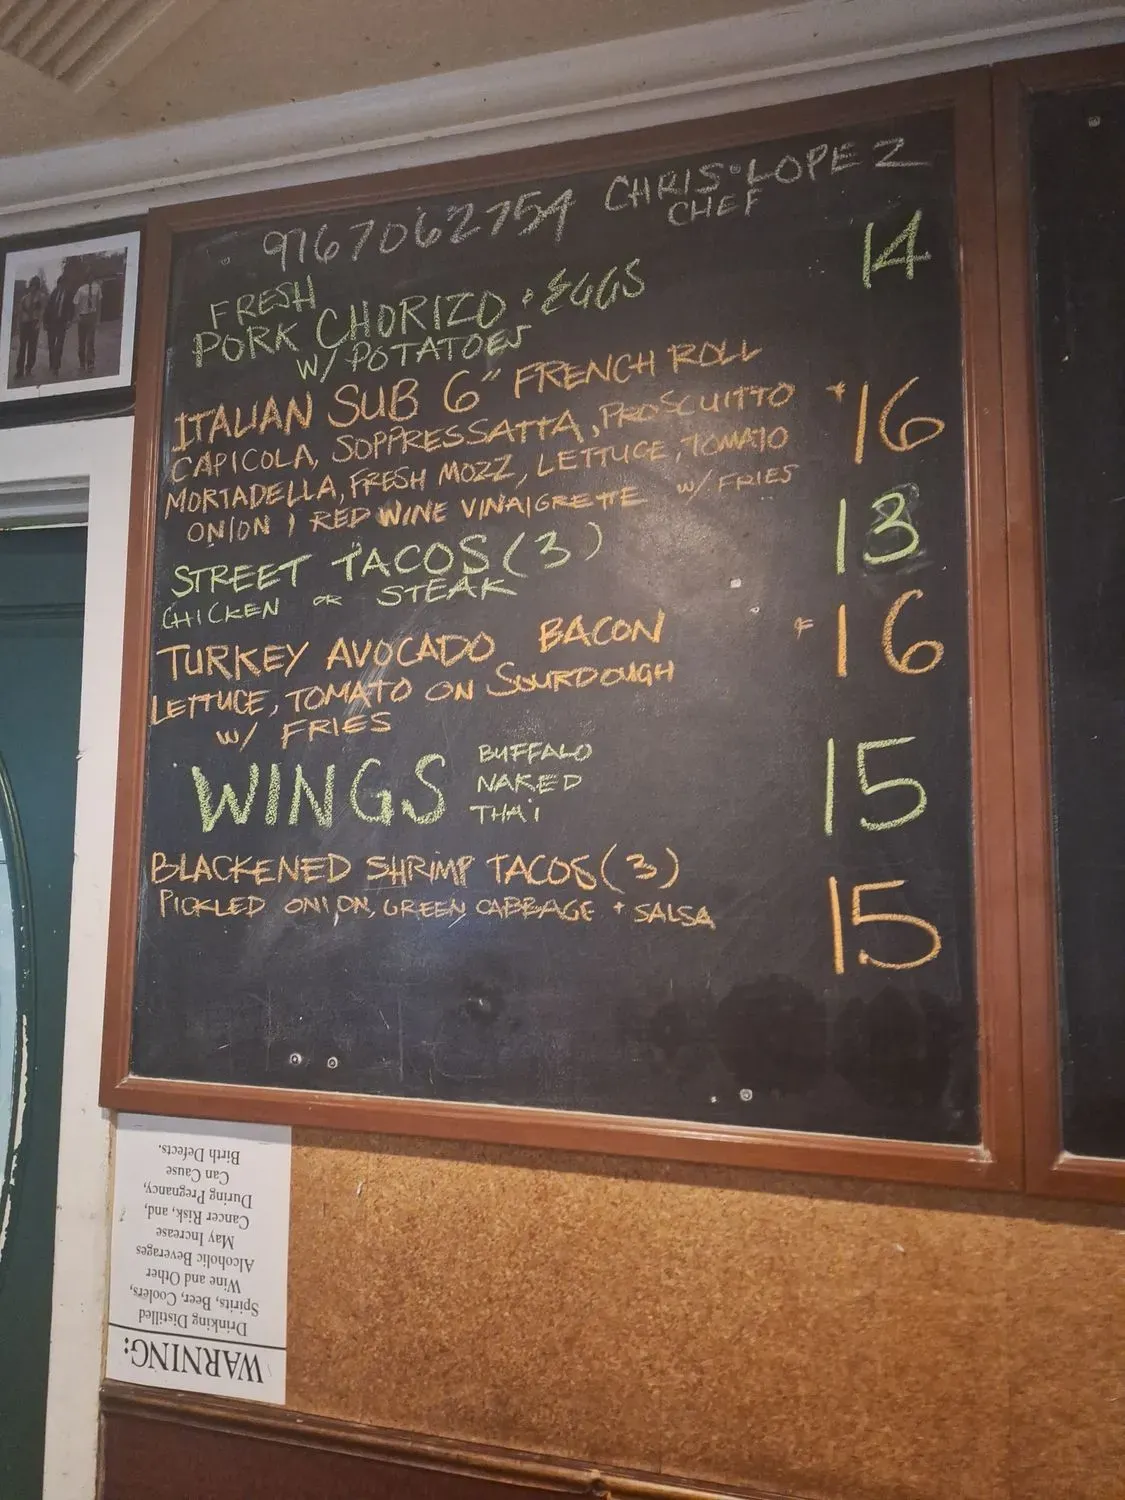 9167062754 CHRIS LOPEZ
CHEF
FRESH
PORK CHORIZO + EGGS 14
W/ POTATOES
ITALIAN SUB 6" FRENCH ROLL
CAPICOLA, SOPPRESSATTA, PROSCUITTO $16
MORTADELLA, FRESH MOZZ, LETTUCE, TOMATO
ONION, RED WINE VINAIGRETTE W/ FRIES
STREET TACOS (3) 13
CHICKEN OR STEAK
TURKEY AVOCADO BACON $16
LETTUCE, TOMATO ON SOURDOUGH
W/ FRIES
WINGS BUFFALO 15
NAKED
THAI
BLACKENED SHRIMP TACOS (3) 15
PICKLED ONION, GREEN CABBAGE + SALSA
WARNING:
Drinking Distilled
Spirits, Beer, Coolers,
Wine and Other
Alcoholic Beverages
May Increase
Cancer Risk, and,
During Pregnancy,
Can Cause
Birth Defects.